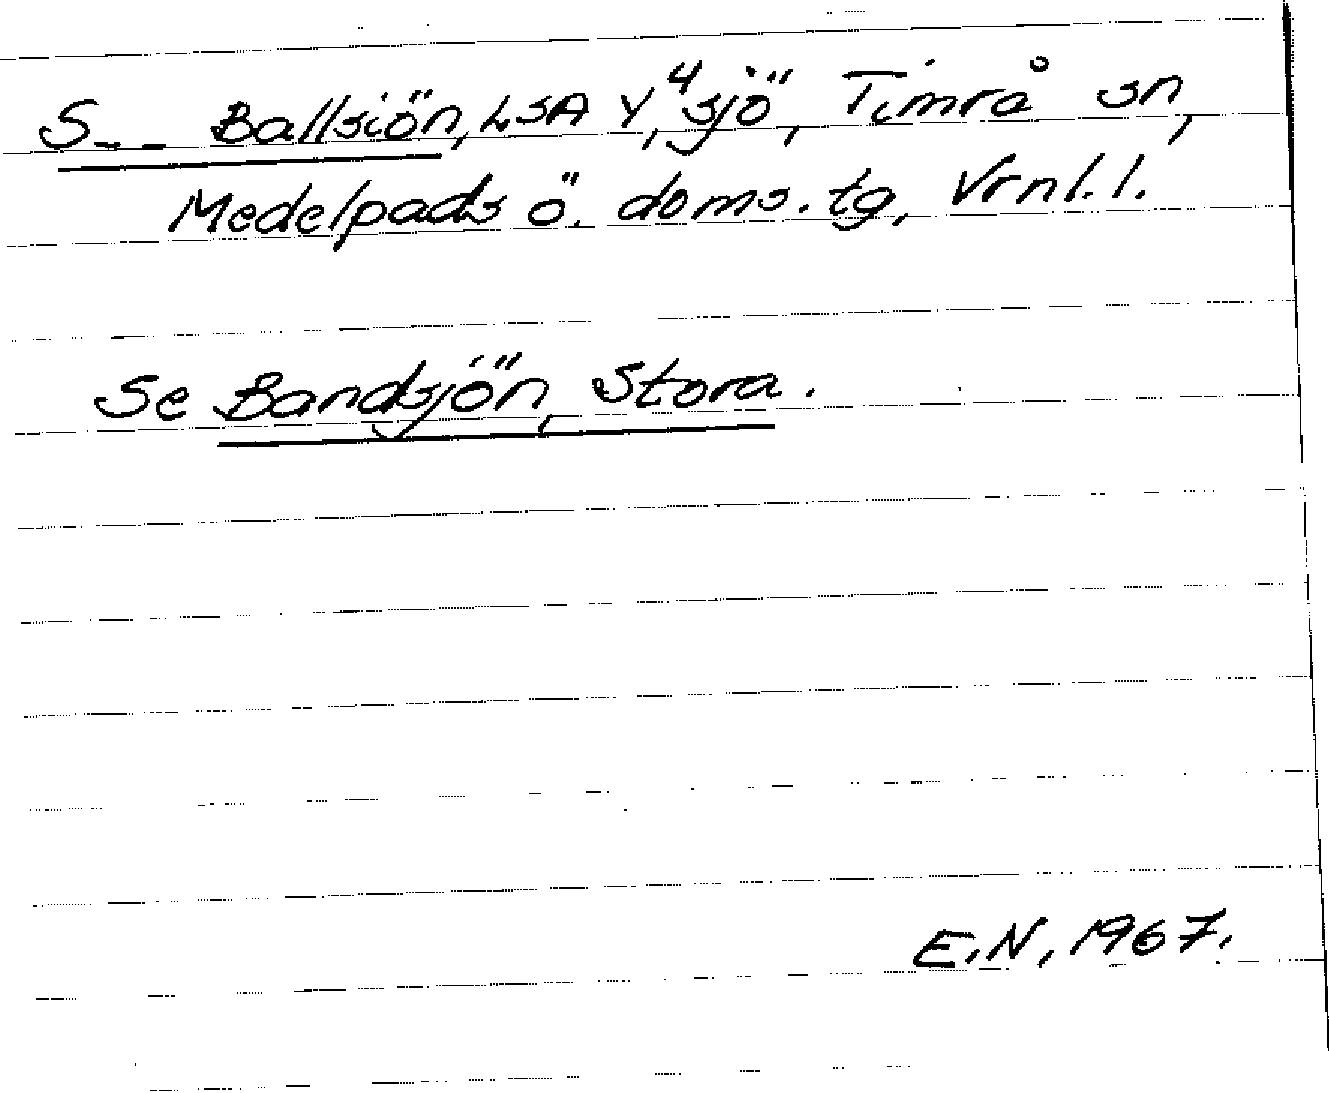 S__ Ballsiön, LSA Y, 4 sjö, Timrå sn,
Medelpads ö. doms. tg, Vrnl. l.
Se Bandsjön, Stora.
E.N, 1967.